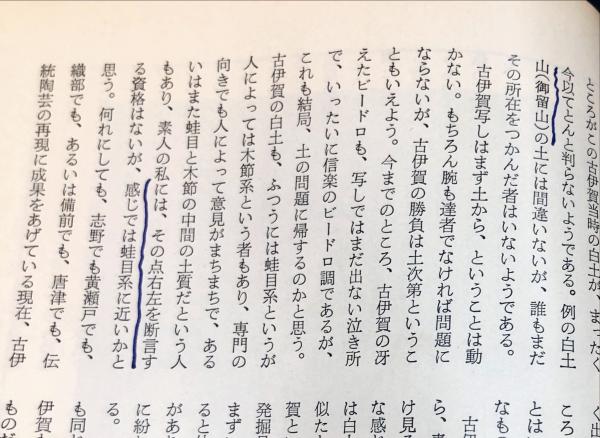 ところがこの古伊賀当時の白土が、まったく
今以てとんと判らないようである。例の白土
山(御留山)の土には間違いないが、誰もまだ
その所在をつかんだ者はいないようである。
古伊賀写しはまず土から、ということは動
かない。もちろん腕も達者でなければ問題に
ならないが、古伊賀の勝負は土次第というこ
ともいえよう。今までのところ、古伊賀の冴
えたビードロも、写しではまだ出ない泣き所
で、いったいに信楽のビードロ調であるが、
これも結局、土の問題に帰するのかと思う。
古伊賀の白土も、ふつうには蛙目系というが
人によっては木節系という者もあり、専門の
向きでも人によって意見がまちまちで、ある
いはまた蛙目と木節の中間の土質だという人
もあり、素人の私には、その点右左を断言す
る資格はないが、感じでは蛙目系に近いかと
思う。何れにしても、志野でも黄瀬戸でも、
織部でも、あるいは備前でも、唐津でも、伝
統陶芸の再現に成果をあげている現在、古伊
く出
ころ
とは
なもの
古伊
ら、
け見
な感じ
は白
似た
賀と
発掘
まず
ると
があ
に紛
る。
も同
伊賀
ものだ